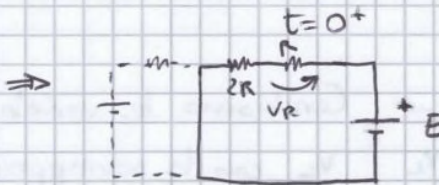 t=0⁺
⇒
R
2R
VR
+
E